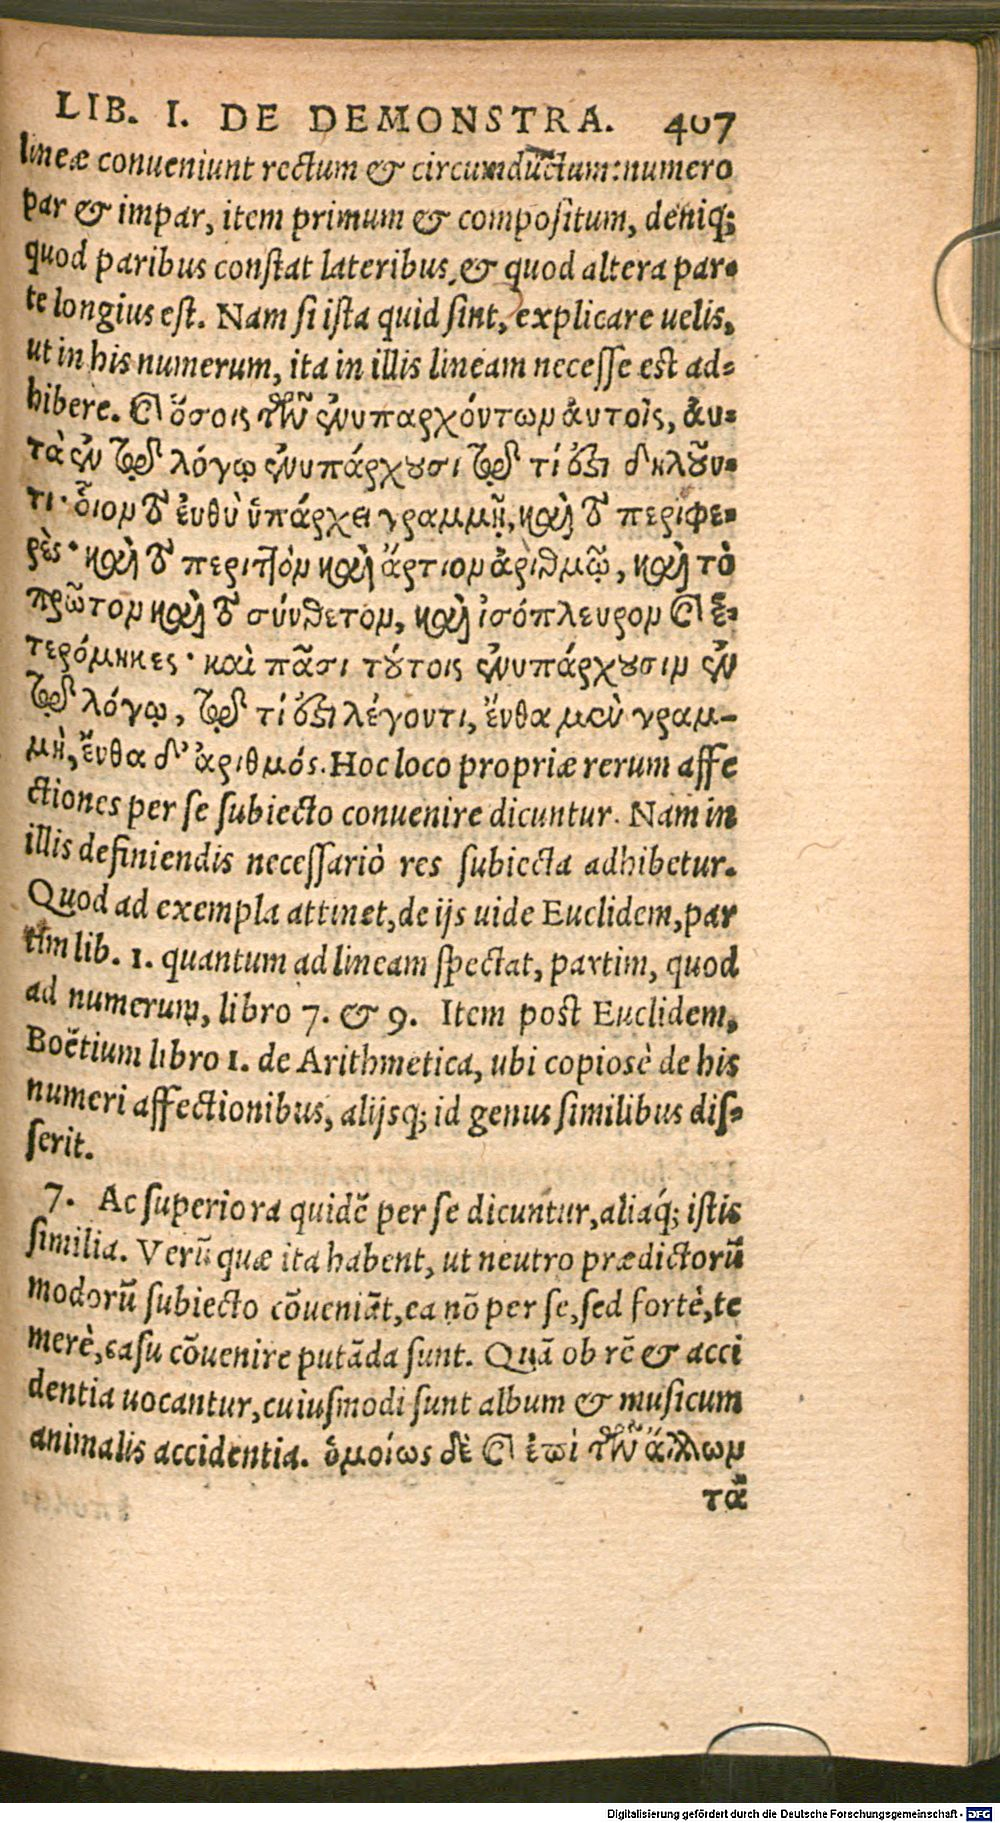 LIB. I. DE DEMONSTRA. 407
lineæ conueniunt rectum & circumductum: numero
par & impar, item primum & compositum, deniq;
quod paribus constat lateribus, & quod altera par-
te longius est. Nam si ista quid sint, explicare uelis,
ut in his numerum, ita in illis lineam necesse est ad-
hibere. καὶ ὅσοις τῶν ἐνυπαρχόντων ἀυτοῖς, ἀυ-
τὰ ἐν τῷ λόγῳ ἐνυπάρχουσι τῷ τί ἐστι δηλοῦν-
τι· οἷον τὸ ἐυθὺ ὑπάρχει γραμμῇ, καὶ τὸ περιφε-
ρὲς· καὶ τὸ περιττὸν καὶ ἄρτιον ἀριθμῷ, καὶ τὸ
πρῶτον καὶ τὸ σύνθετον, καὶ ἰσόπλευρον καὶ ἑ-
τερόμηκες· καὶ πᾶσι τούτοις ἐνυπάρχουσιν ἐν
τῷ λόγῳ, τῷ τί ἐστι λέγοντι, ἔνθα μὲν γραμ-
μὴ, ἔνθα δ’ ἀριθμός. Hoc loco propriæ rerum affe
ctiones per se subiecto conuenire dicuntur. Nam in
illis definiendis necessariò res subiecta adhibetur.
Quod ad exempla attinet, de ijs uide Euclidem, par
tim lib. 1. quantum ad lineam spectat, partim, quod
ad numerum, libro 7. & 9. Item post Euclidem,
Boëtium libro 1. de Arithmetica, ubi copiosè de his
numeri affectionibus, alijsq; id genus similibus dis-
serit.
7. Ac superiora quidē per se dicuntur, aliaq́; istis
similia. Verū quæ ita habent, ut neutro prædictorū
modorū subiecto cōueniāt, ea nō per se, sed fortè, te
merè, casu cōuenire putāda sunt. Quā ob rē & acci
dentia uocantur, cuiusmodi sunt album & musicum
animalis accidentia. ὁμοίως δὲ καὶ ἐπὶ τῶν ἄλλων
τὰ
Digitalisierung gefördert durch die Deutsche Forschungsgemeinschaft - DFG